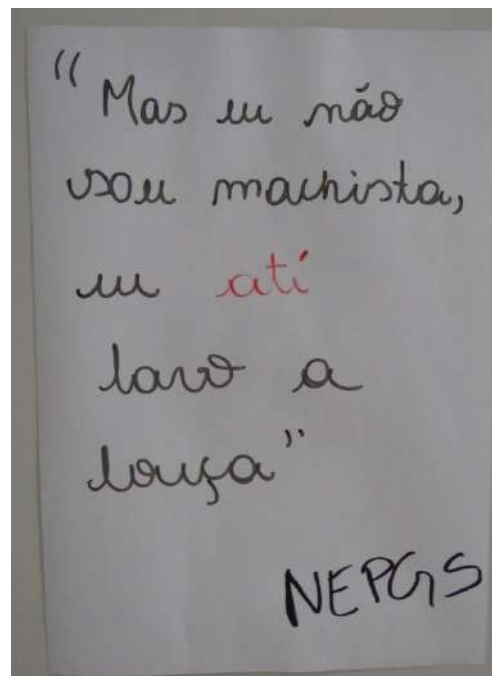 "Mas eu não
sou machista,
eu até
lavo a
louça"
NEPGS